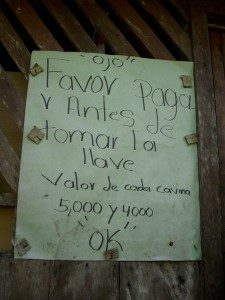 "OJO"
Favor Paga
r Antes de
tomar la
llave.
Valor de cada cavina
5,000 y 4000
"OK"